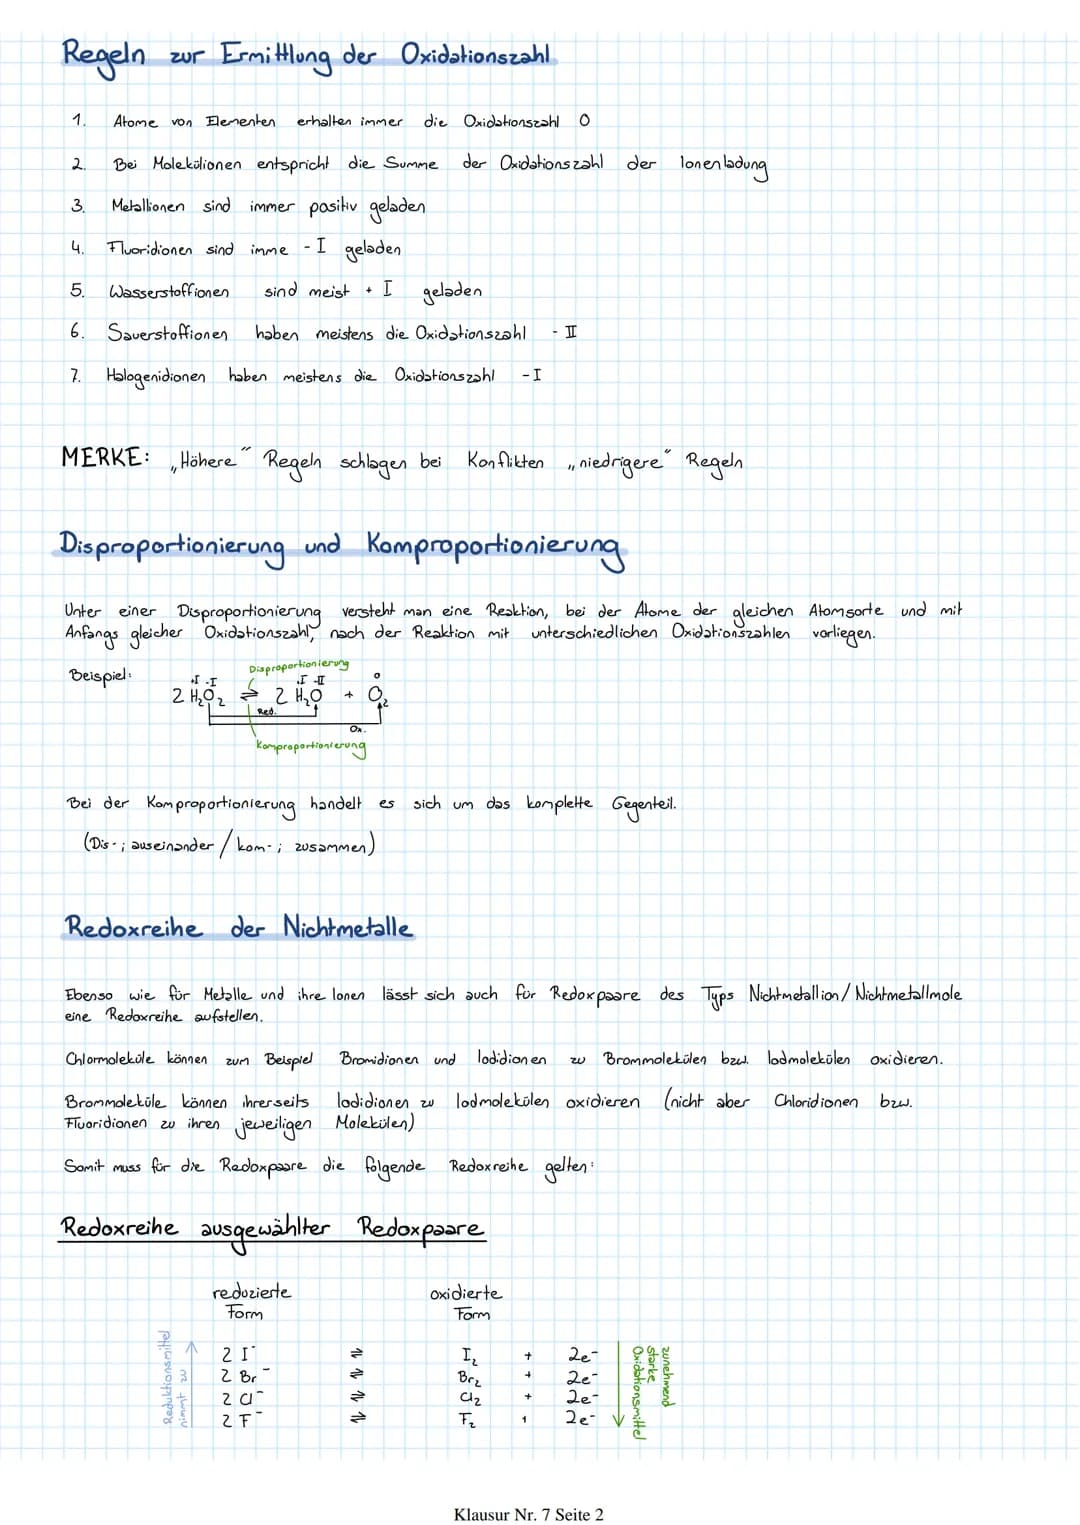 Regeln zur Ermittlung der Oxidationszahl
1. Atome von Elementen erhalten immer die Oxidationszahl 0
2. Bei Molekülionen entspricht die Summe der Oxidationszahl der Ionenladung
3. Metallionen sind immer positiv geladen
4. Fluoridionen sind imme - I geladen
5. Wasserstoffionen sind meist + I geladen
6. Sauerstoffionen haben meistens die Oxidationszahl - II
7. Halogenidionen haben meistens die Oxidationszahl - I
MERKE: „Höhere“ Regeln schlagen bei Konflikten „niedrigere“ Regeln
Disproportionierung und Komproportionierung
Unter einer Disproportionierung versteht man eine Reaktion, bei der Atome der gleichen Atomsorte und mit
Anfangs gleicher Oxidationszahl, nach der Reaktion mit unterschiedlichen Oxidationszahlen vorliegen.
Beispiel:
Disproportionierung
+I -I +I -II 0
2 H₂O₂ ⇌ 2 H₂O + O₂
Red.
Ox.
Komproportionierung
Bei der Komproportionierung handelt es sich um das komplette Gegenteil.
(Dis-; auseinander / kom-; zusammen)
Redoxreihe der Nichtmetalle
Ebenso wie für Metalle und ihre Ionen lässt sich auch für Redoxpaare des Typs Nichtmetallion/Nichtmetallmole
eine Redoxreihe aufstellen.
Chlormoleküle können zum Beispiel Bromidionen und Iodidionen zu Brommolekülen bzw. Iodmolekülen oxidieren.
Brommoleküle können ihrerseits Iodidionen zu Iodmolekülen oxidieren (nicht aber Chloridionen bzw.
Fluoridionen zu ihren jeweiligen Molekülen)
Somit muss für die Redoxpaare die folgende Redoxreihe gelten:
Redoxreihe ausgewählter Redoxpaare
reduzierte oxidierte
Form Form
2 I⁻ ⇌ I₂ + 2e⁻
2 Br⁻ ⇌ Br₂ + 2e⁻
2 Cl⁻ ⇌ Cl₂ + 2e⁻
2 F⁻ ⇌ F₂ + 2e⁻
Reduktionsmittel
nimmt zu
zunehmend
starke
Oxidationsmittel
Klausur Nr. 7 Seite 2